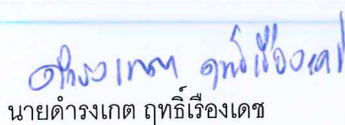 ดำรงเกต ฤทธิ์เรืองเดช
นายดำรงเกต ฤทธิ์เรืองเดช